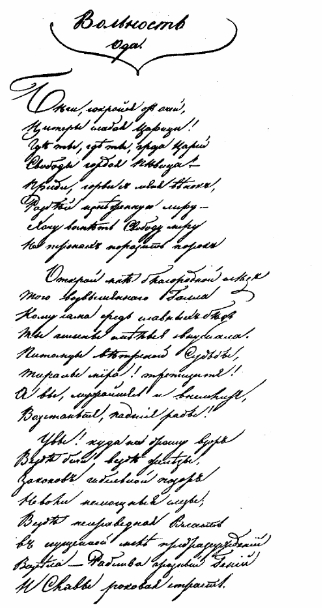 Вольность
Ода.
Бѣги, сокройся отъ очей,
Цитеры слабая Царица!
Гдѣ ты, гдѣ ты, гроза Царей
Свободы гордая Пѣвица? —
Приди, сорви съ меня вѣнокъ,
Разбей изнѣженную лиру —
Хочу воспѣть Свободу міру
На тронахъ поразить порокъ
Открой мнѣ благородной слѣдъ
Того возвышеннаго Галла
Кому сама средь славныхъ бѣдъ
Ты гимны смѣлые внушала.
Питомцы вѣтреной Судьбы,
Тираны міра! трепещите!
А вы, мужайтесь и внемлите,
Возстаньте, падшіе рабы!
Увы! куда ни брошу взоръ
Вездѣ бичи, вездѣ желѣзы,
Законовъ гибельной позоръ
Неволи немощныя слезы;
Вездѣ неправедная Власть
Въ сгущенной мглѣ предразсужденій
Возсѣла — Рабства грозный Геній
И Славы роковая страсть.